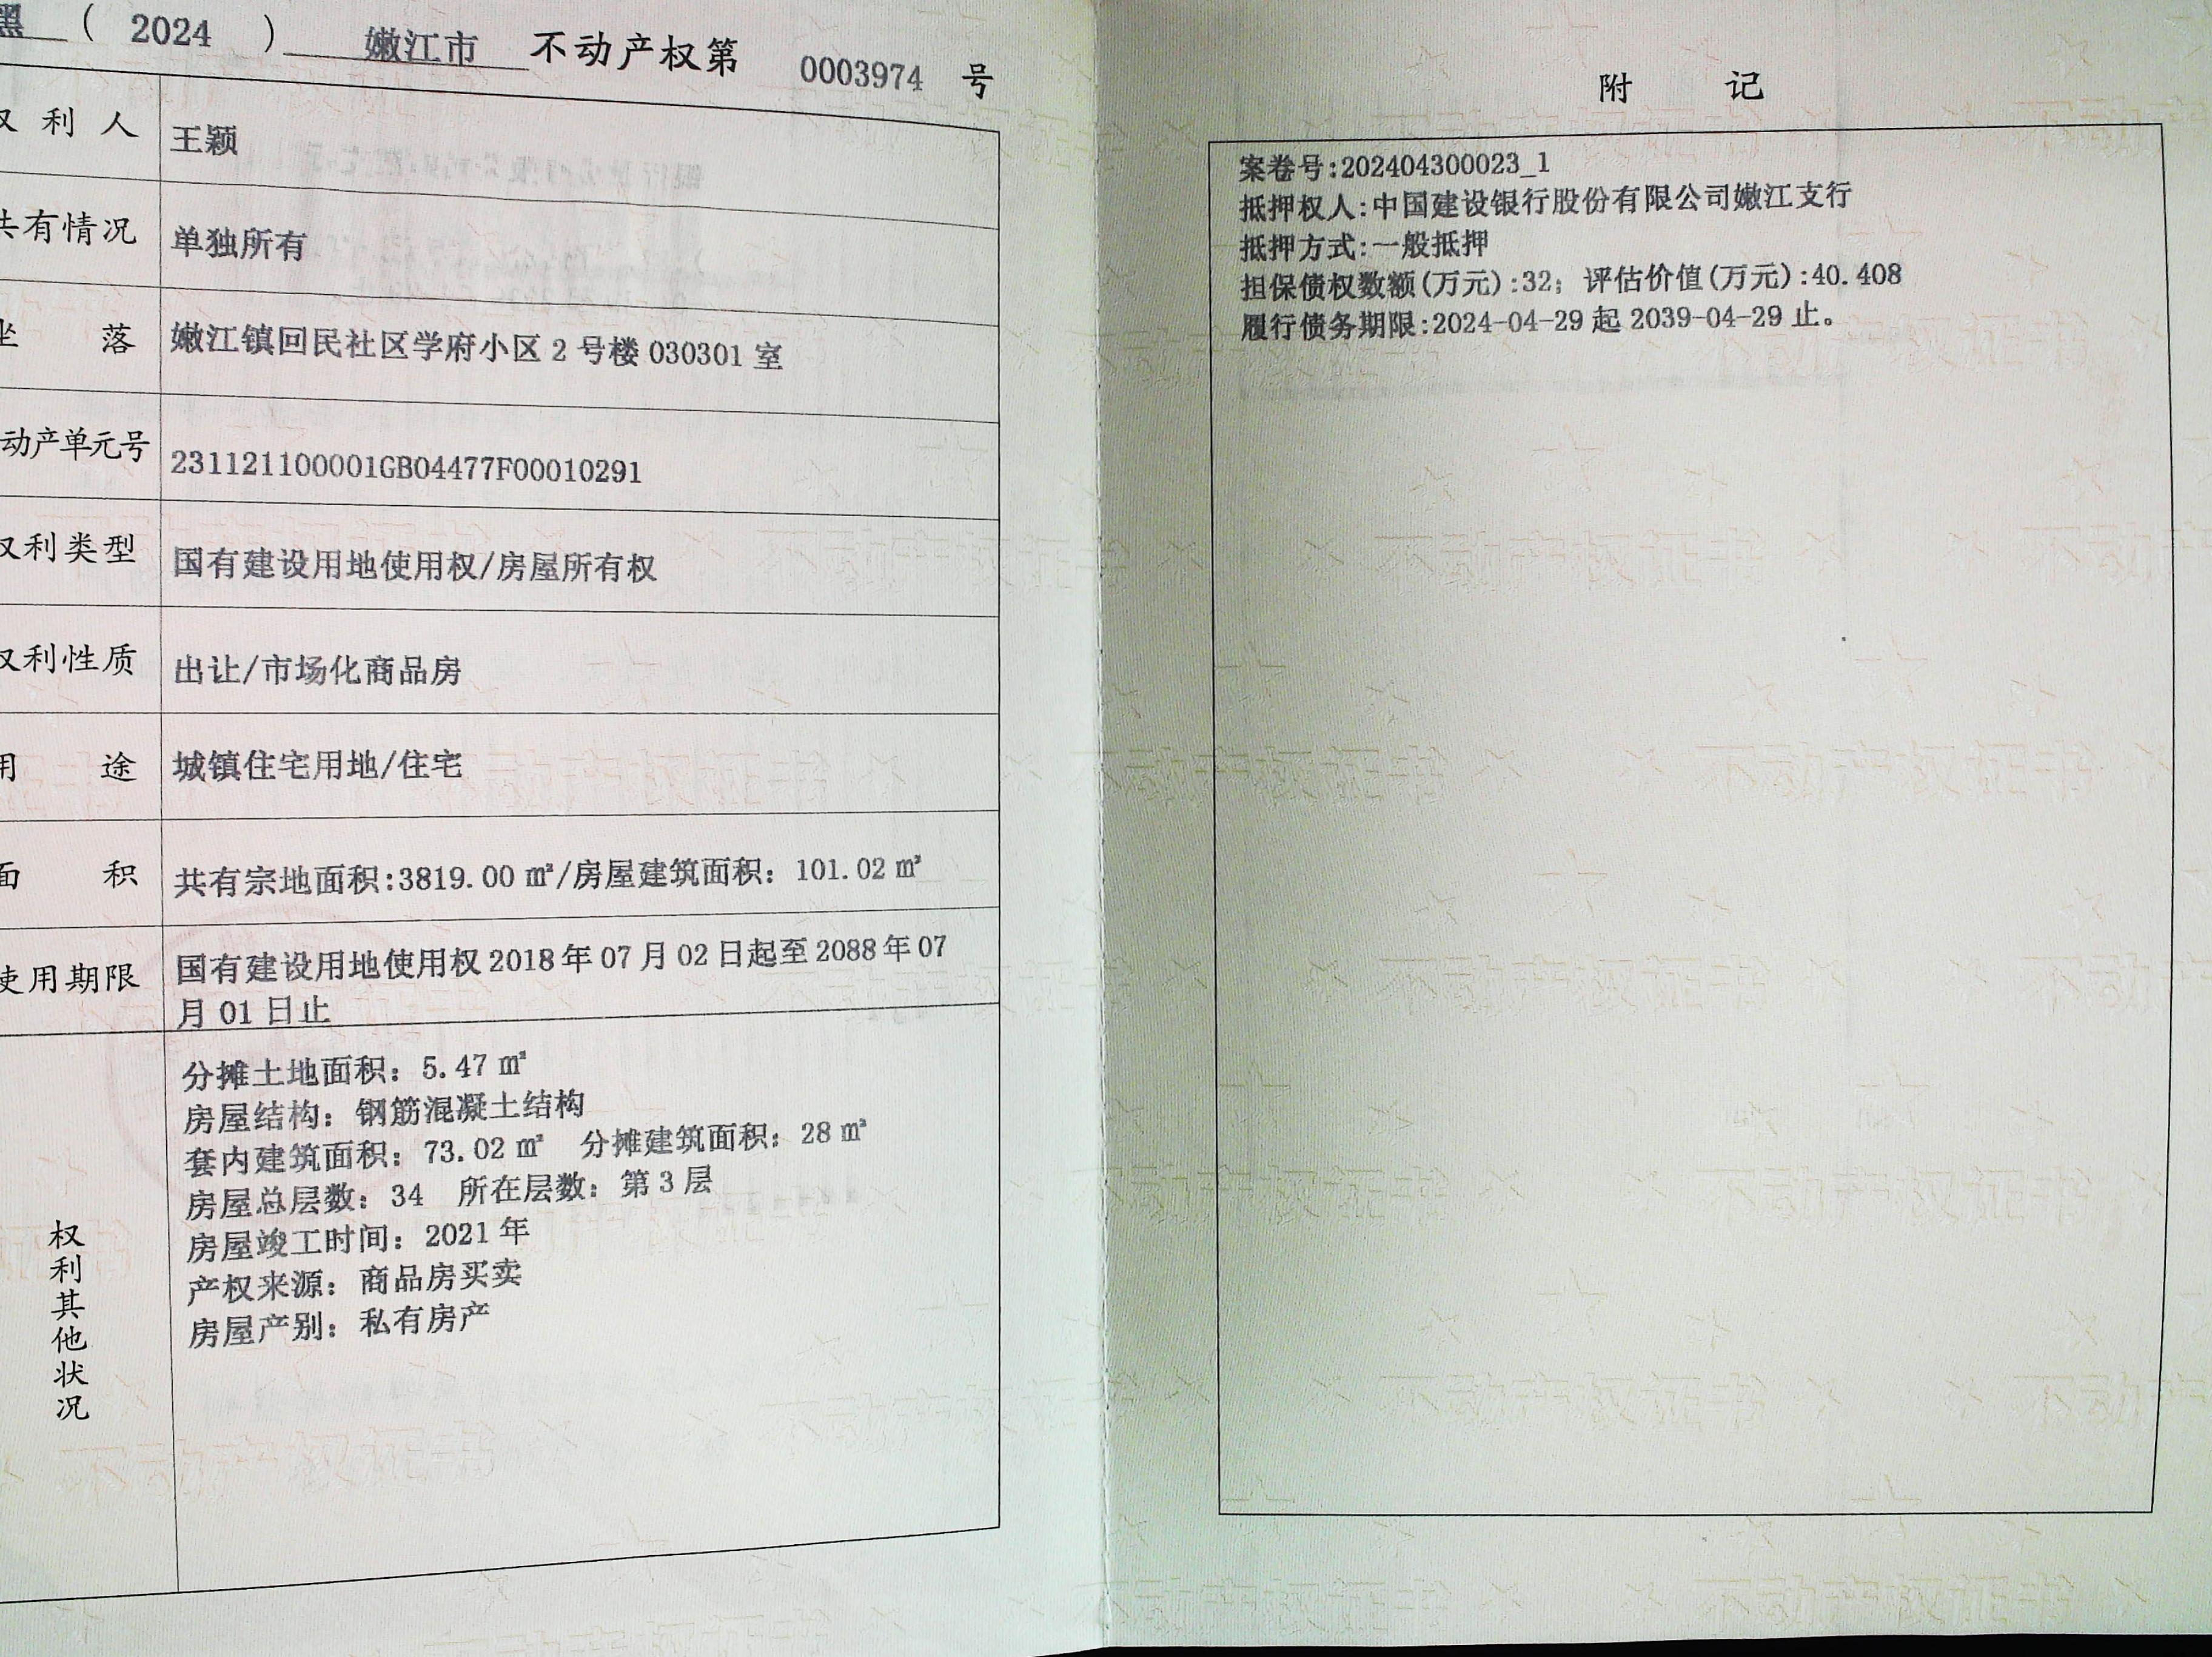 黑 ( 2024 ) 嫩江市 不动产权第 0003974 号
权利人 王颖
共有情况 单独所有
坐落 嫩江镇回民社区学府小区 2 号楼 030301 室
动产单元号 231121100001GB04477F00010291
权利类型 国有建设用地使用权/房屋所有权
权利性质 出让/市场化商品房
用途 城镇住宅用地/住宅
面积 共有宗地面积:3819.00 ㎡/房屋建筑面积: 101.02 ㎡
使用期限 国有建设用地使用权 2018 年 07 月 02 日起至 2088 年 07
月 01 日止
权利其他状况
分摊土地面积: 5.47 ㎡
房屋结构: 钢筋混凝土结构
套内建筑面积: 73.02 ㎡ 分摊建筑面积: 28 ㎡
房屋总层数: 34 所在层数: 第 3 层
房屋竣工时间: 2021 年
产权来源: 商品房买卖
房屋产别: 私有房产
附记
案卷号:202404300023_1
抵押权人:中国建设银行股份有限公司嫩江支行
抵押方式:一般抵押
担保债权数额(万元):32; 评估价值(万元):40.408
履行债务期限:2024-04-29 起 2039-04-29 止。